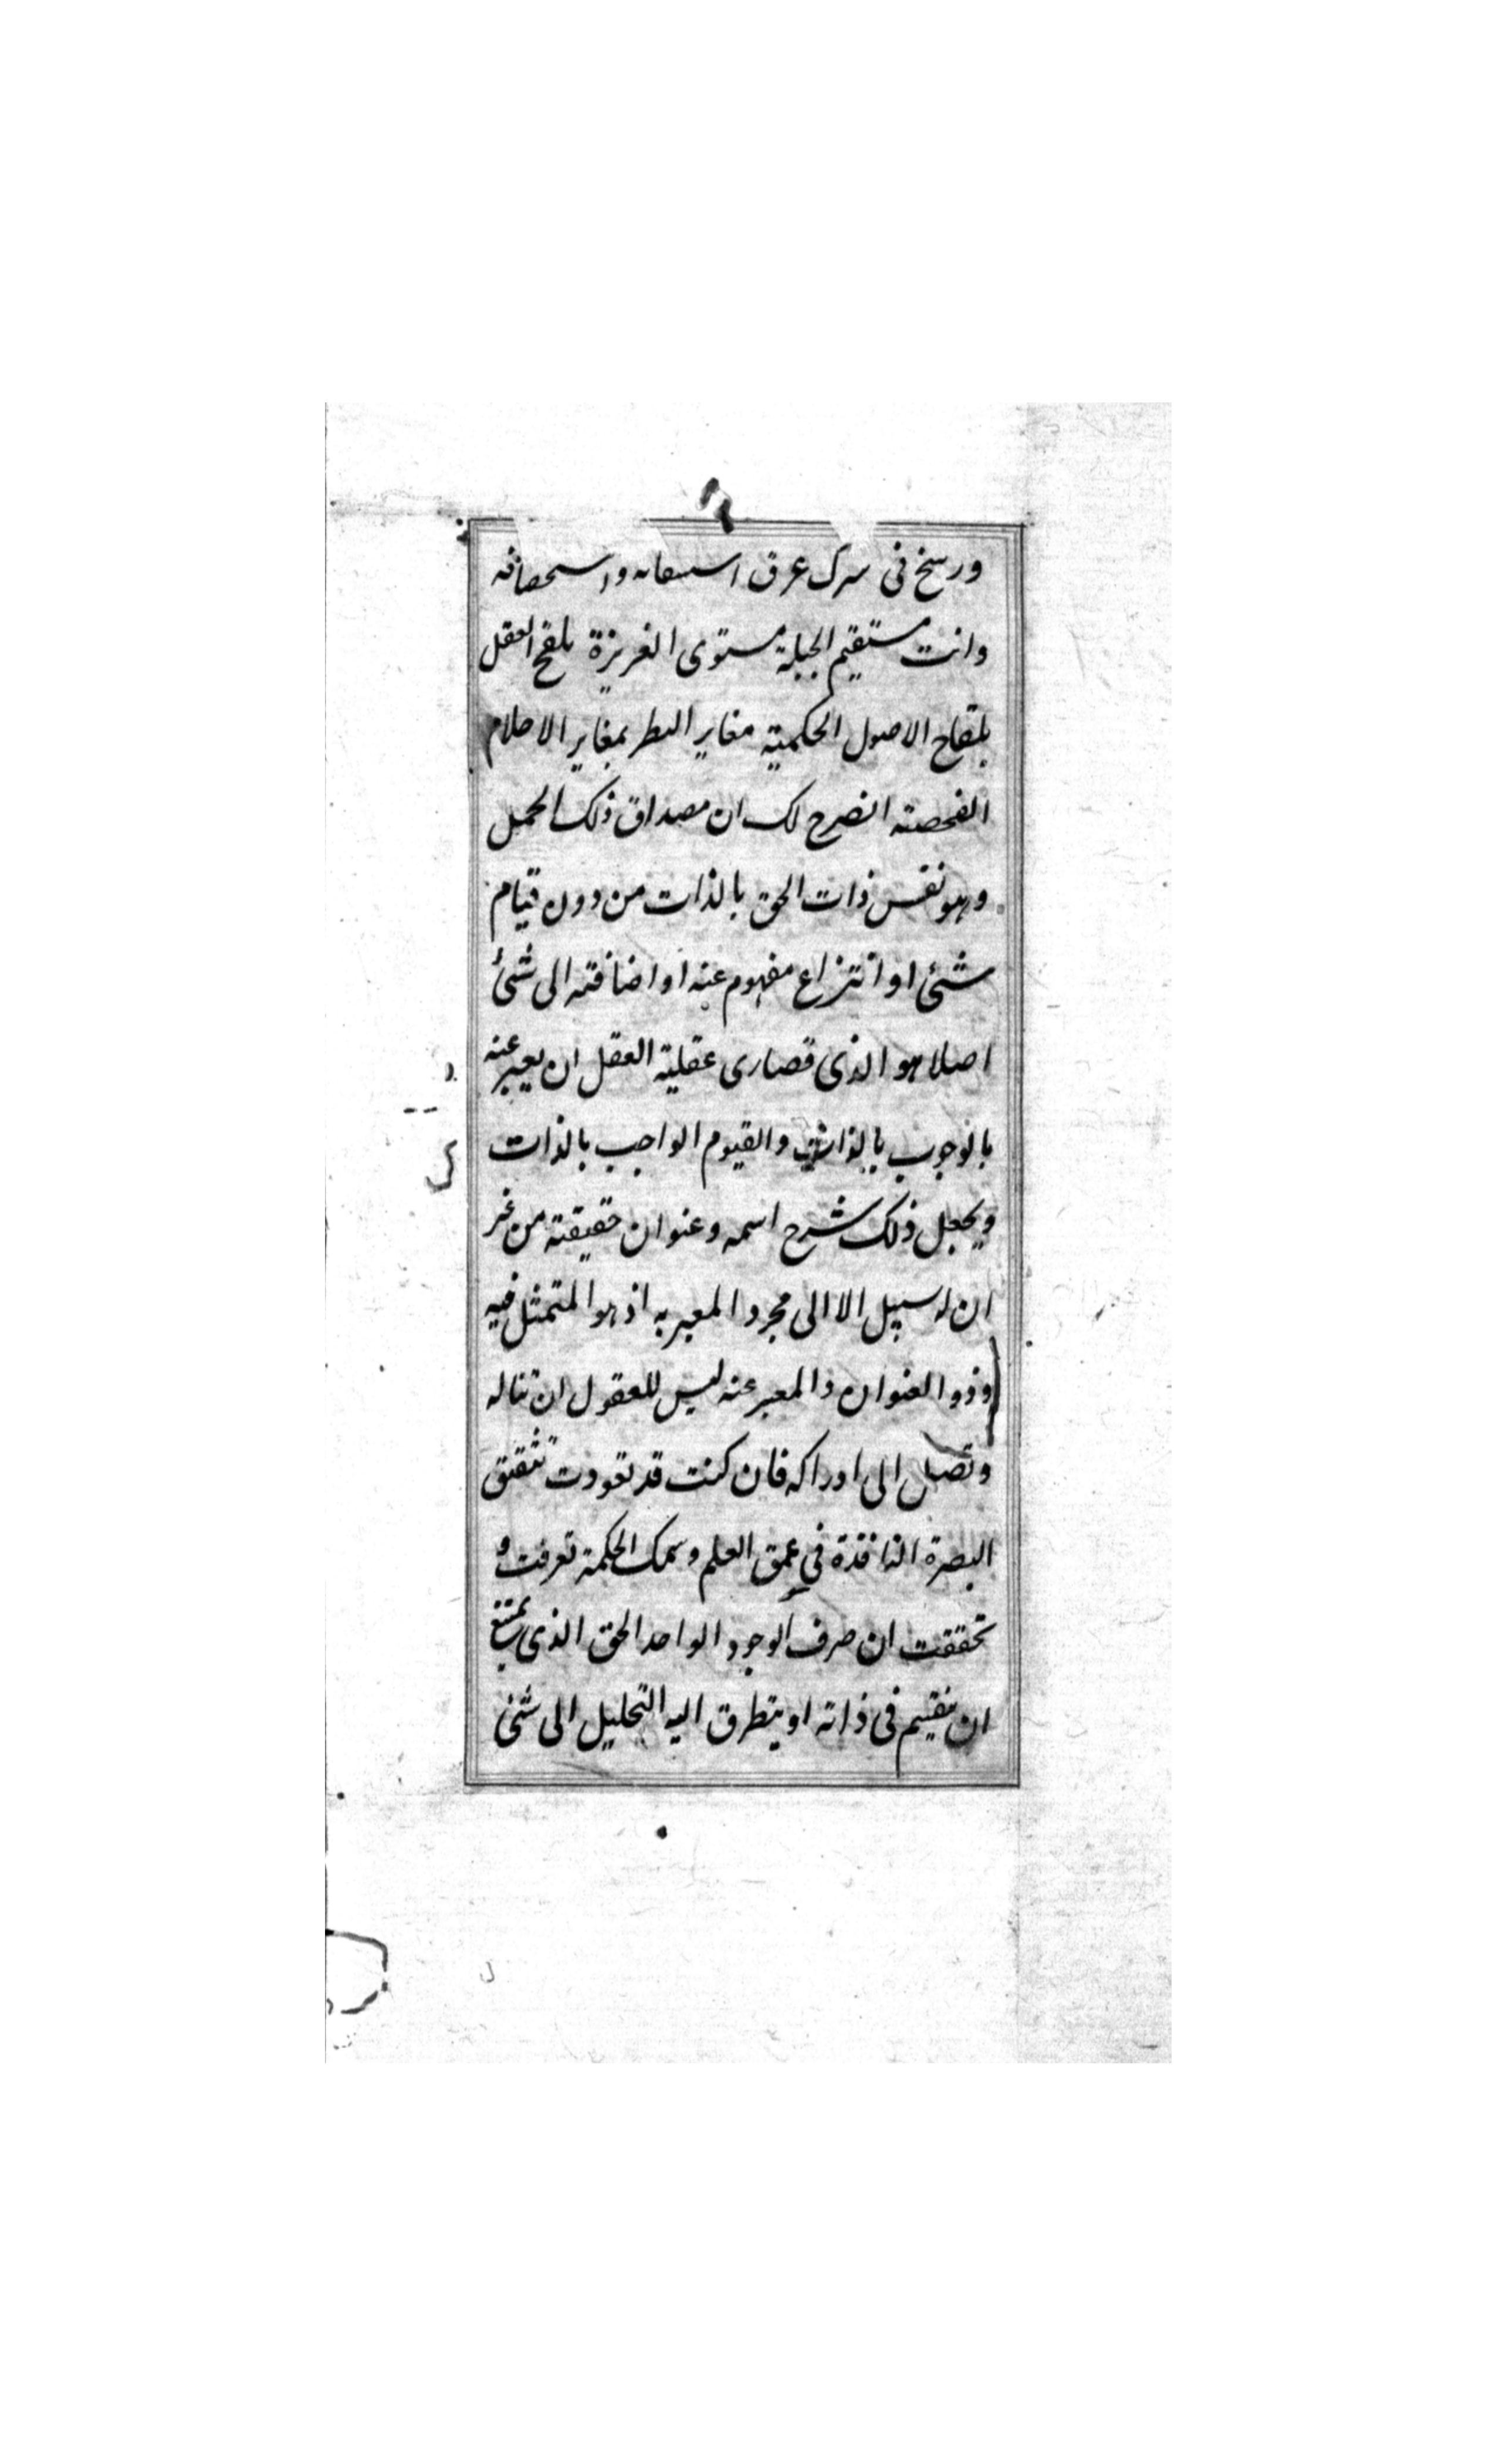 ورسخ في سرك عرق استيقانه واستحصافه
وانت مستقيم الجبلة مستوى الغريزة بلقح العقل
بلقاح الاصول الحكمية مغاير النظر بمغاير الاحلام
الفحصته انصرح لك ان مصداق ذلك الحمل
وهو نفس ذات الحق بالذات من دون قيام
شئ او انتزاع مفهوم عنه او اضافته الى شئ
اصلا هو الذى قصارى عقلية العقل ان يعبر عنه
بالوجوب بالذات والقيوم الواجب بالذات
ويجعل ذلك شرح اسمه وعنوان حقيقته من غير
ان له سبيل الا الى مجرد المعبر به اذ هو المتمثل فيه
وذو العنوان والمعبر عنه ليس للعقول ان تناله
وتصل الى ادراكه فان كنت قد تعودت تثقيق
البصرة النافذة في عمق العلم وسمك الحكمة تعرفت و
تحققت ان صرف الوجود الواحد الحق الذى يمتنع
ان ينقسم في ذاته او يتطرق اليه التحليل الى شئ